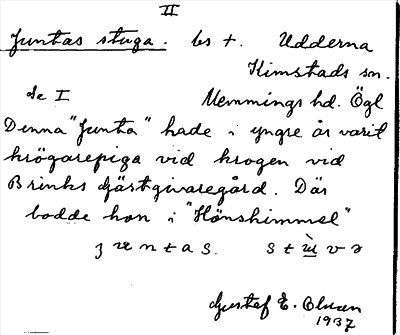 II
Juntas stuga. bs +. Udderna
Kimstads sn.
se I Memmings hd. Ögl
Denna "Junta" hade i yngre år varit
krögarepiga vid krogen vid
Brinks Gästgivaregård. Där
bodde hon i "Hönshimmel"
Gustaf E. Olsson
1937